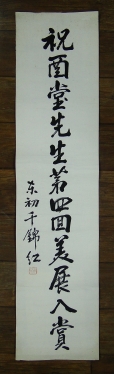 祝酉堂先生第四回美展入賞
东初于錦红